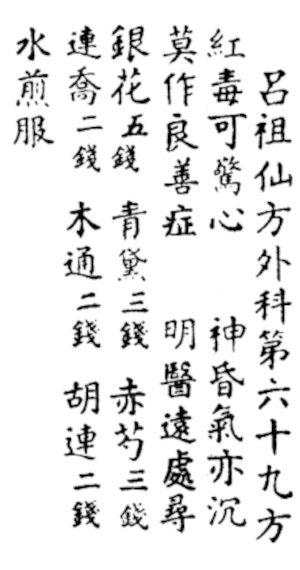 呂祖仙方外科第六十九方
紅毒可驚心 神昏氣亦沉
莫作良善症 明醫遠處尋
銀花五錢 青黛三錢 赤芍三錢
連喬二錢 木通二錢 胡連二錢
水煎服